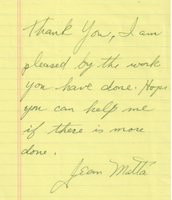 Thank You, I am
pleased by the work
you have done. Hope
you can help me
if there is more
done.
Jean